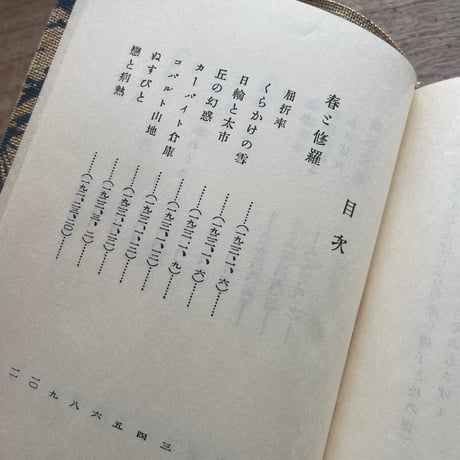 目次
春と修羅
屈折率……(一九二二、一、六)……三
くらかけの雪……(一九二二、一、六)……四
日輪と太市……(一九二二、一、九)……五
丘の幻惑……(一九二二、一、一二)……六
カーバイト倉庫……(一九二二、一、一二)……八
コバルト山地……(一九二二、一、二二)……九
ぬすびと……(一九二二、三、二)……一〇
戀と病熱……(一九二二、三、二〇)……一一